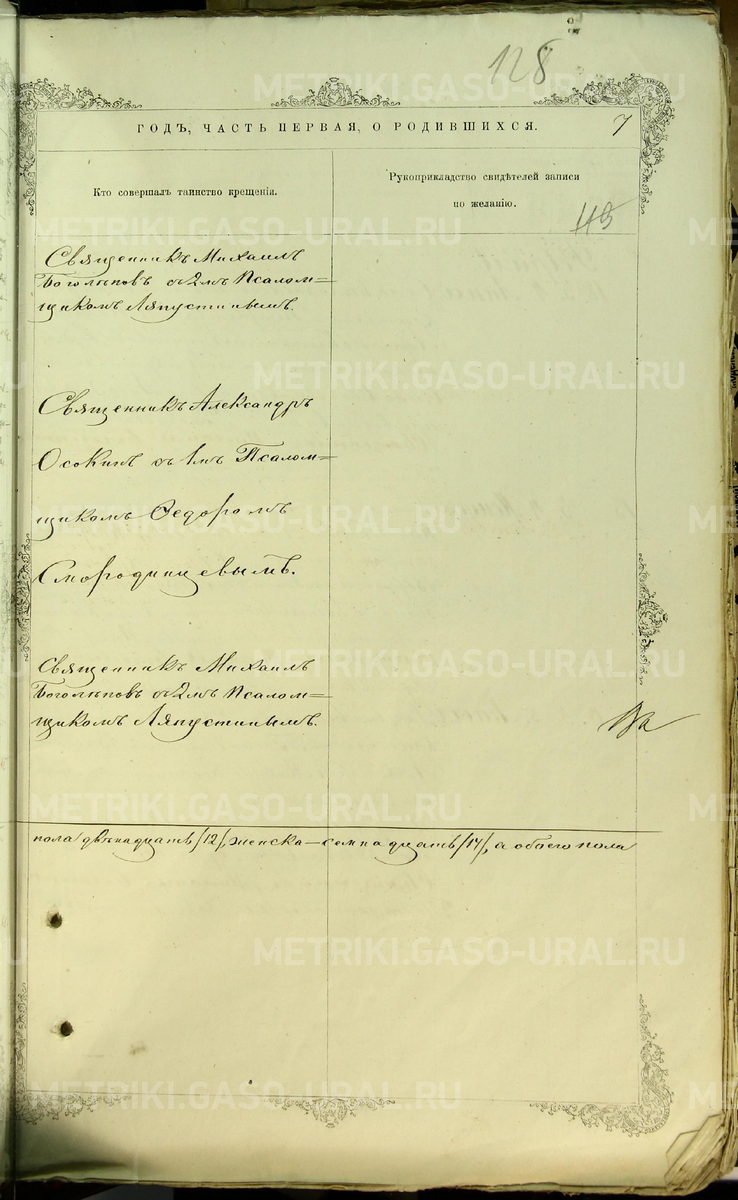 128
ГОДЪ, ЧАСТЬ ПЕРВАЯ, О РОДИВШИХСЯ.
7
Кто совершалъ таинство крещенія.
Рукоприкладство свидѣтелей записи
по желанію.
Священникъ Михаилъ
Боголѣповъ съ 2мъ Псалом=
щикомъ Ляпустинымъ.
Священникъ Александръ
Осокинъ съ 1мъ Псалом=
щикомъ Ѳедоромъ
Смородинцевымъ.
Священникъ Михаилъ
Боголѣповъ съ 2мъ Псалом=
щикомъ Ляпустинымъ.
пола двѣнадцать /12/, женска – семнадцать /17/, а обоего пола
METRIKI.GASO-URAL.RU